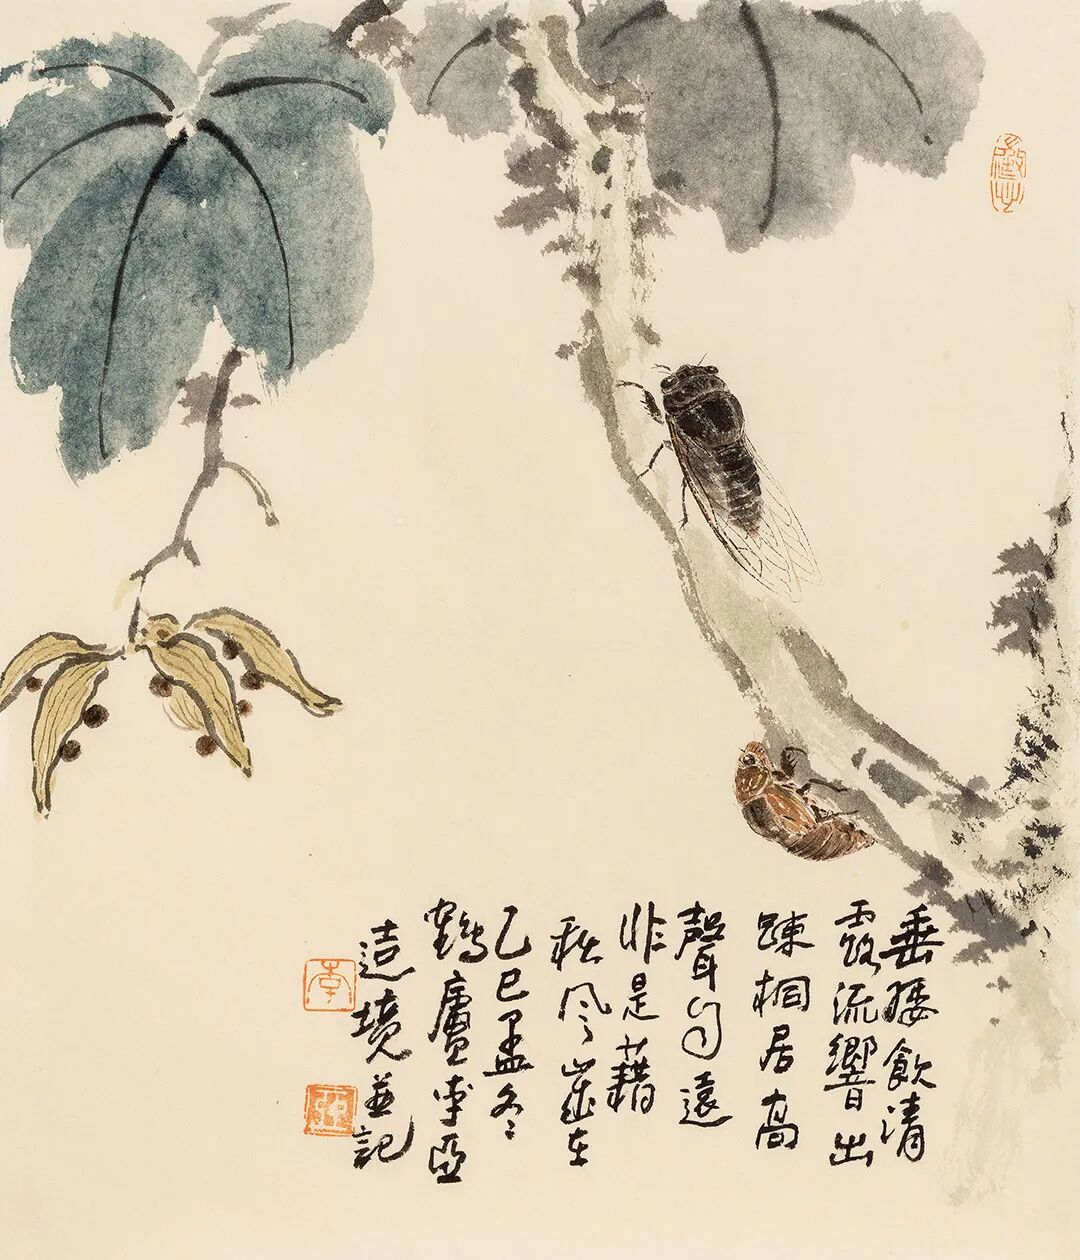 垂緌飲清
露流響出
踈桐居高
聲自遠
非是藉
秋風歲在
乙巳孟冬
鶴廬李亞
造境並記
李
亞